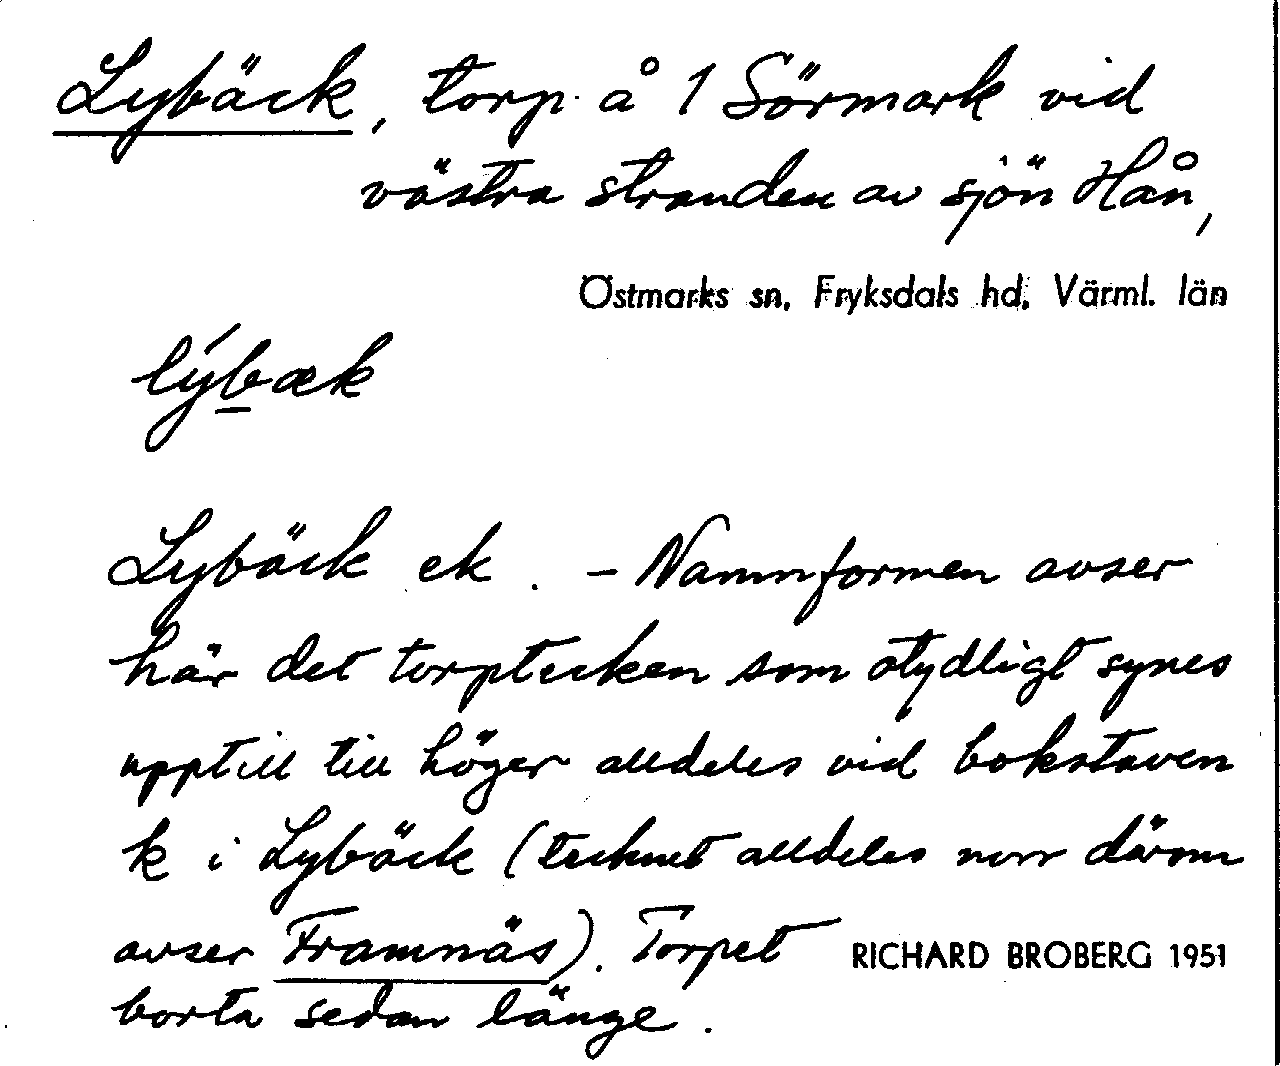 Lybäck, torp å 1 Sörmark vid
västra stranden av sjön Hån,
Östmarks sn, Fryksdals hd, Värml. län
lýbæk
Lybäck ek. – Namnformen avser
här det torptecken som otydligt synes
upptill till höger alldeles vid bokstaven
k i Lybäck (tecknet alldeles norr därom
avser Framnäs). Torpet
RICHARD BROBERG 1951
borta sedan länge.